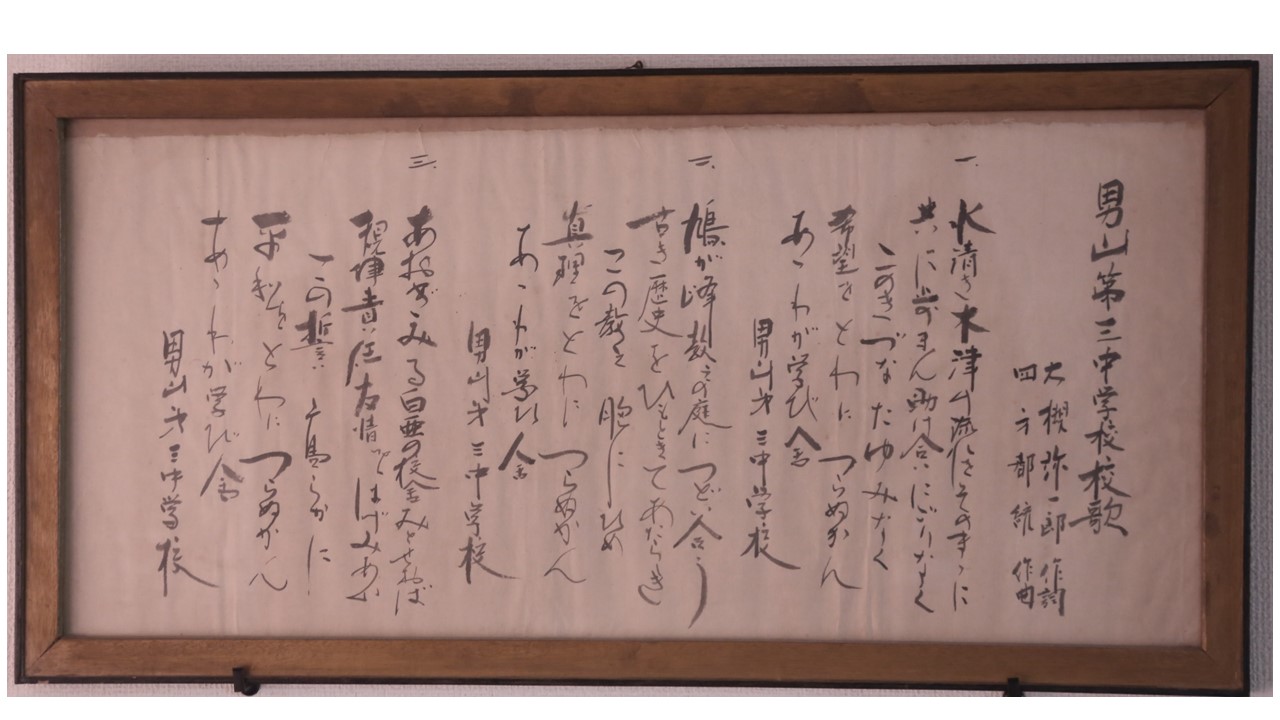 男山第三中学校校歌
大槻弥一郎 作詞
四方都統 作曲
一、
水清き木津の流れさそのまゝに
共に歩まん助け合いにごりなく
このきづなたゆみなく
希望をとわにつらぬかん
あゝわが学び舎
男山第三中学校
二、
鳩が峰教えの庭につどい合う
古き歴史をひもときてあたらしき
この教を胸にしひめ
真理をとわにつらぬかん
あゝわが学び舎
男山第三中学校
三、
あおぎみる白亜の校舎みとせおば
規律責任友情とはげみあふ
この誓い高らかに
平和をとわにつらぬかん
あゝわが学び舎
男山第三中学校